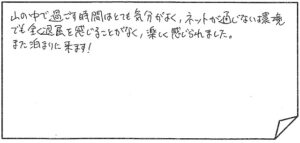 山の中で過ごす時間はとても気分がよく、ネットが通じない環境
でも全く退屈を感じることがなく、楽しく感じられました。
また泊まりに来ます!